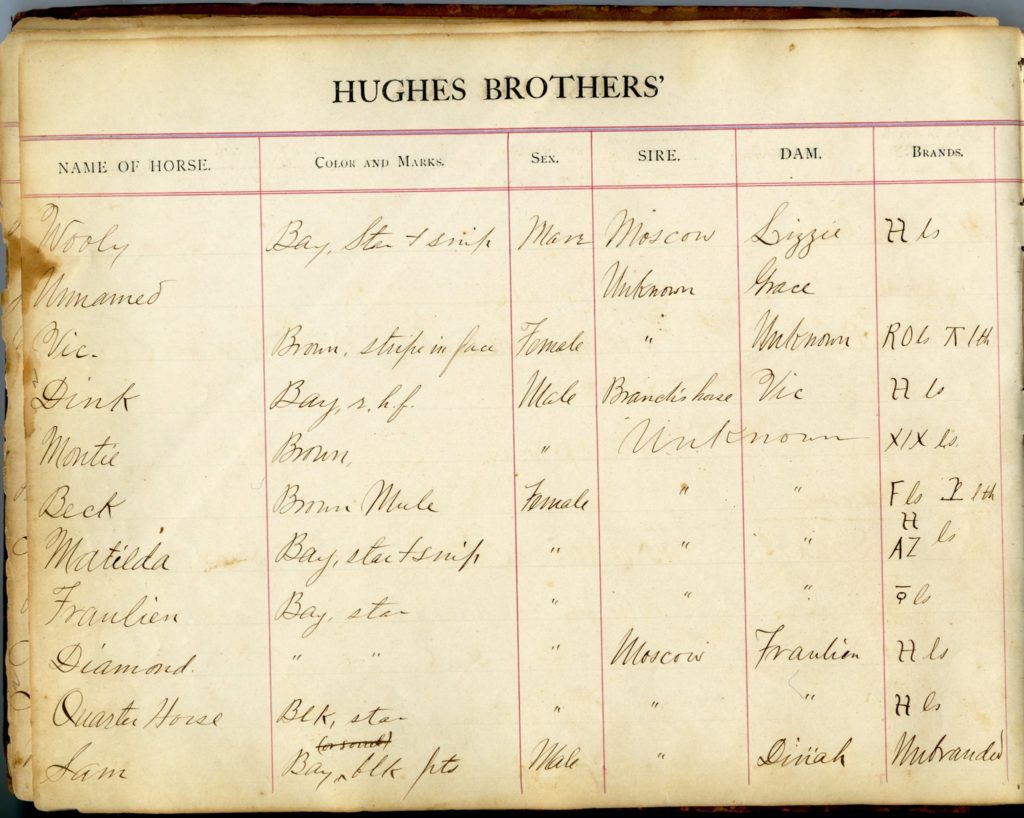 HUGHES BROTHERS'
NAME OF HORSE. COLOR AND MARKS. SEX. SIRE. DAM. BRANDS.
Wooly Bay, Star + snip Mare Moscow Lizzie H ls
Unnamed Unknown Grace
Vic. Brown, stripe in face Female " Unknown RO ls lth
Dink Bay, r.h.f. Male Branch's horse Vic H ls
Montie Brown, " Unknown XIX ls.
Beck Brown Mule Female " " F ls lth
H
Matilda Bay, star + snip " " " AZ ls
Fraulien Bay, star " " " ls
Diamond. " " " Moscow Fraulien H ls
Quarter Horse Blk, star " " " H ls
Sam Bay, blk pts Male " Dinah Unbranded